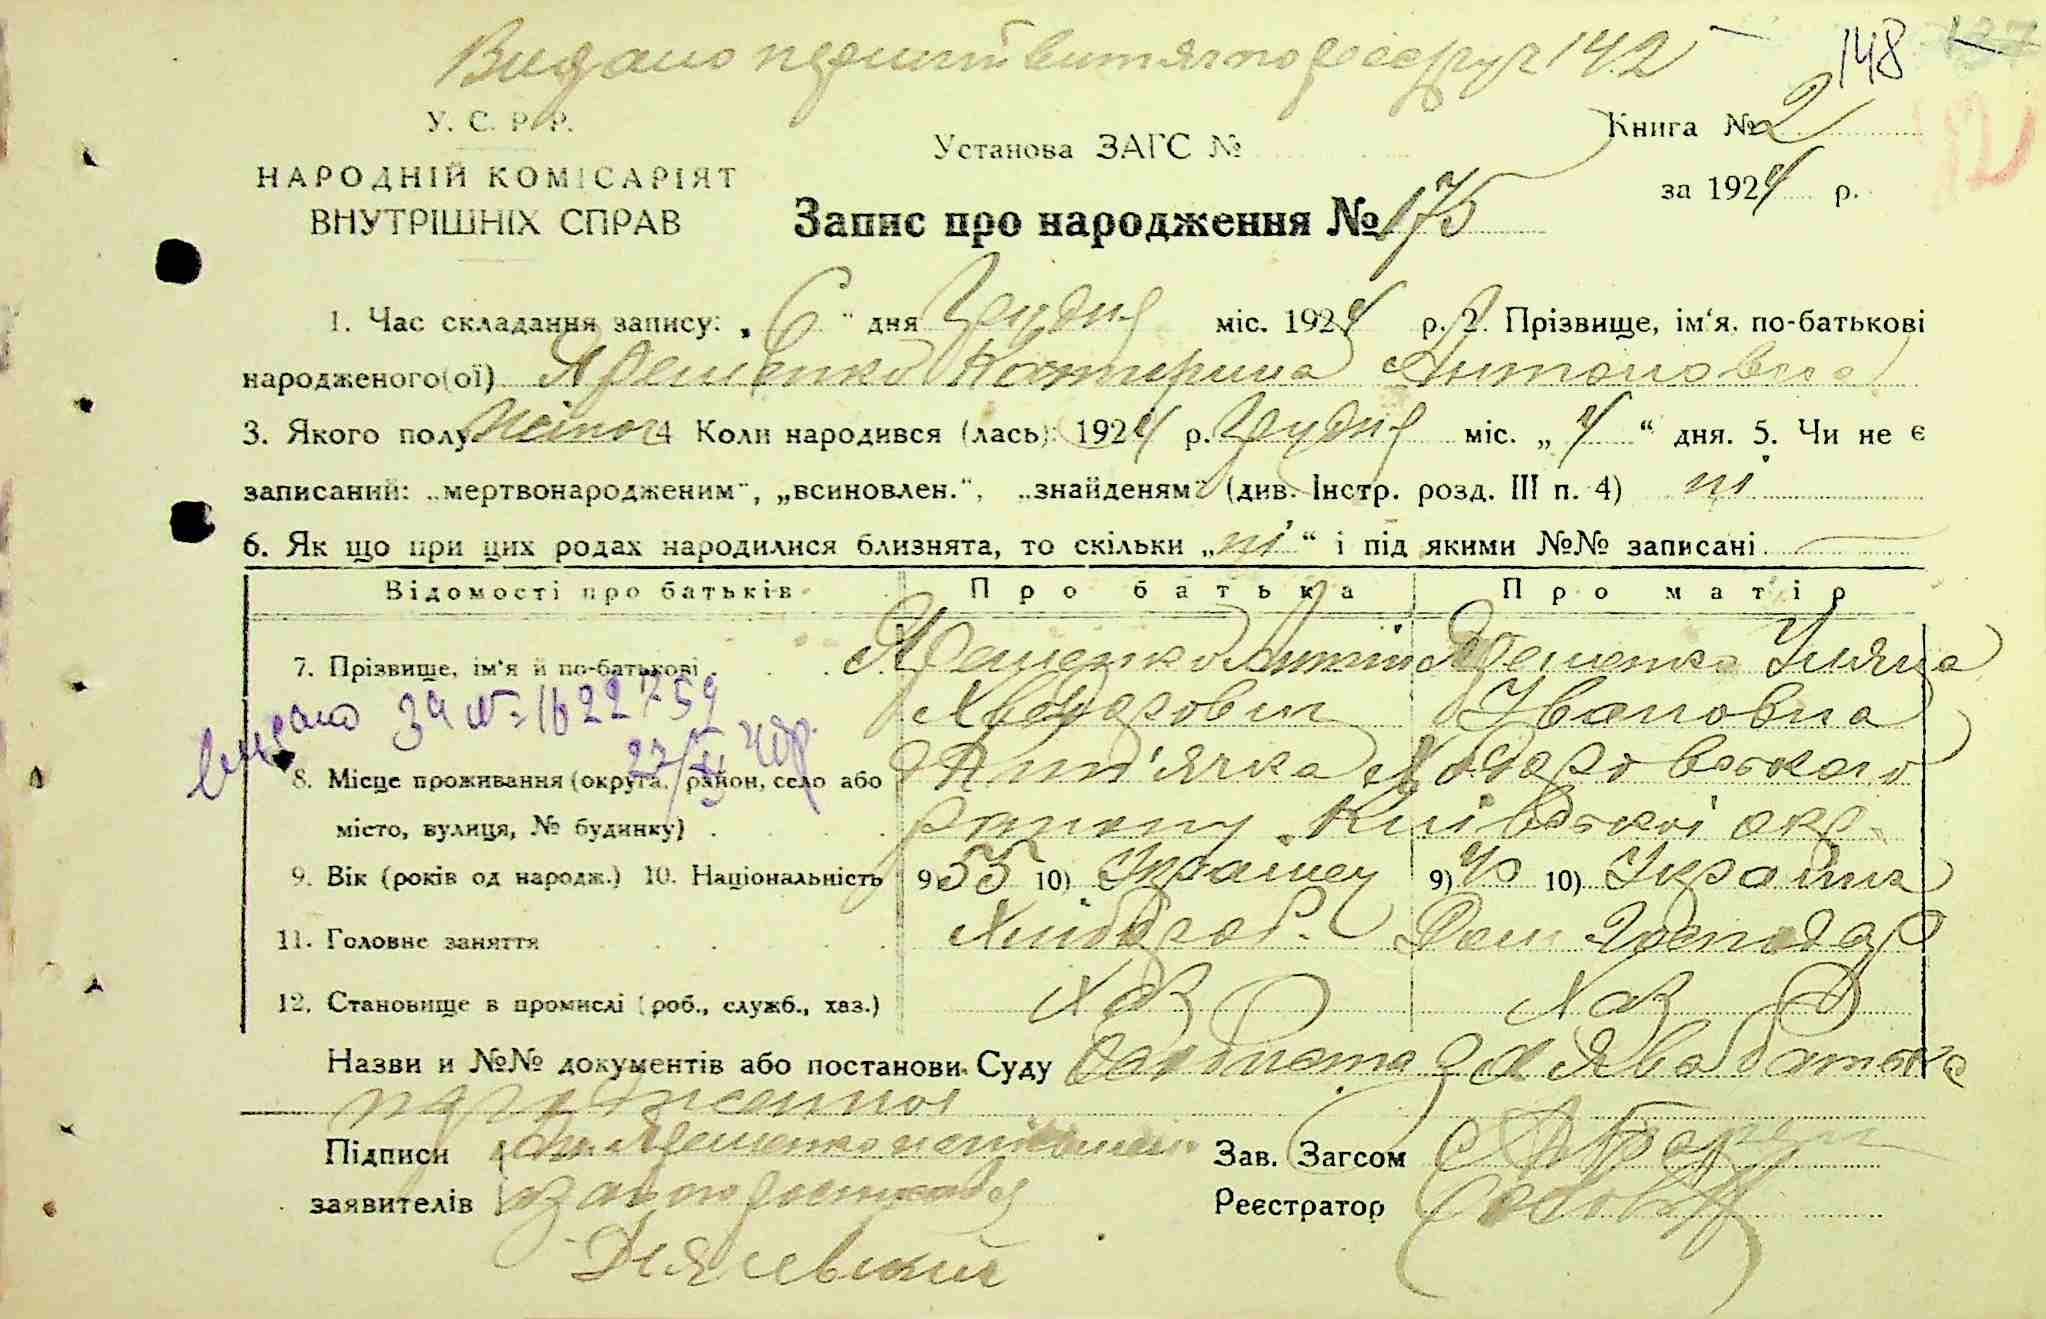 Видано первий витяг по реєстру 142
148 137
У. С. Р. Р.
Книга № 2
Установа ЗАГС №
НАРОДНІЙ КОМІСАРІЯТ
за 1924 р.
ВНУТРІШНІХ СПРАВ
Запис про народження № 175
1. Час складання запису: „ 6 " дня Грудня міс. 1924 р. 2. Прізвище, ім'я, по-батькові
народженого(ої) Ярешенко Катерина Антоновна
3. Якого полу жіноч 4 Коли народився (лась): 1924 р. Грудня міс. „ 4 " дня. 5. Чи не є
записаний: „мертвонародженим", „всиновлен.", „знайденям" (див. Інстр. розд. III п. 4) ні
6. Як що при цих родах народилися близнята, то скільки „ ні " і під якими №№ записані
Відомості про батьків Про батька Про матір
7. Прізвище, ім'я й по-батькові Ярешенко Антін Ярешенко Уляна
Хведорович Івановна
видано за № 1622759
27/XI 40р.
8. Місце проживання (округа, район, село або Ходоровського
місто, вулиця, № будинку) району Київської окр.
9. Вік (років од народж.) 10. Національність 9) 55 10) Українец 9) 40 10) Українка
11. Головне заняття Хлібороб. Дом Господар
12. Становище в промислі (роб., служб., хаз.) Хаз Хаз
Назви и №№ документів або постанови Суду заява батька
Підписи Ярешенко Зав. Загсом
заявителів Реєстратор